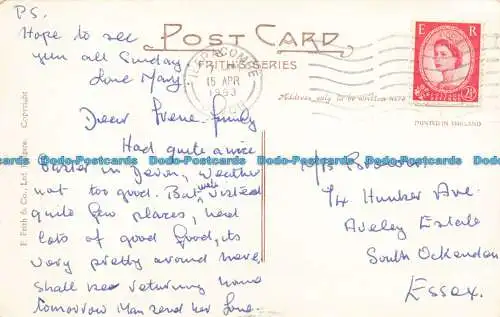 P.S.
Hope to see
you all Sunday.
Love Mary.
POST CARD
FRITH'S SERIES
ILFRACOMBE
15 APR
1963
DEVON
E R
2½D
Address only to be written here
PRINTED IN ENGLAND
Dear Irene & family
Had quite a nice
Easter in Devon, weather
not too good. But we visited
quite few places, had
lots of good food, its
very pretty around here
shall be returning home
tomorrow Mum send her love.
Mrs
14 Hunker Ave.
Aveley Estate
South Ockendon
Essex.
F. Frith & Co., Ltd., Reigate. Copyright
Dodo-Postcards Dodo-Postcards Dodo-Postcards Dodo-Postcards Dodo-Postcards Dodo-Postcards Dodo-Postcards